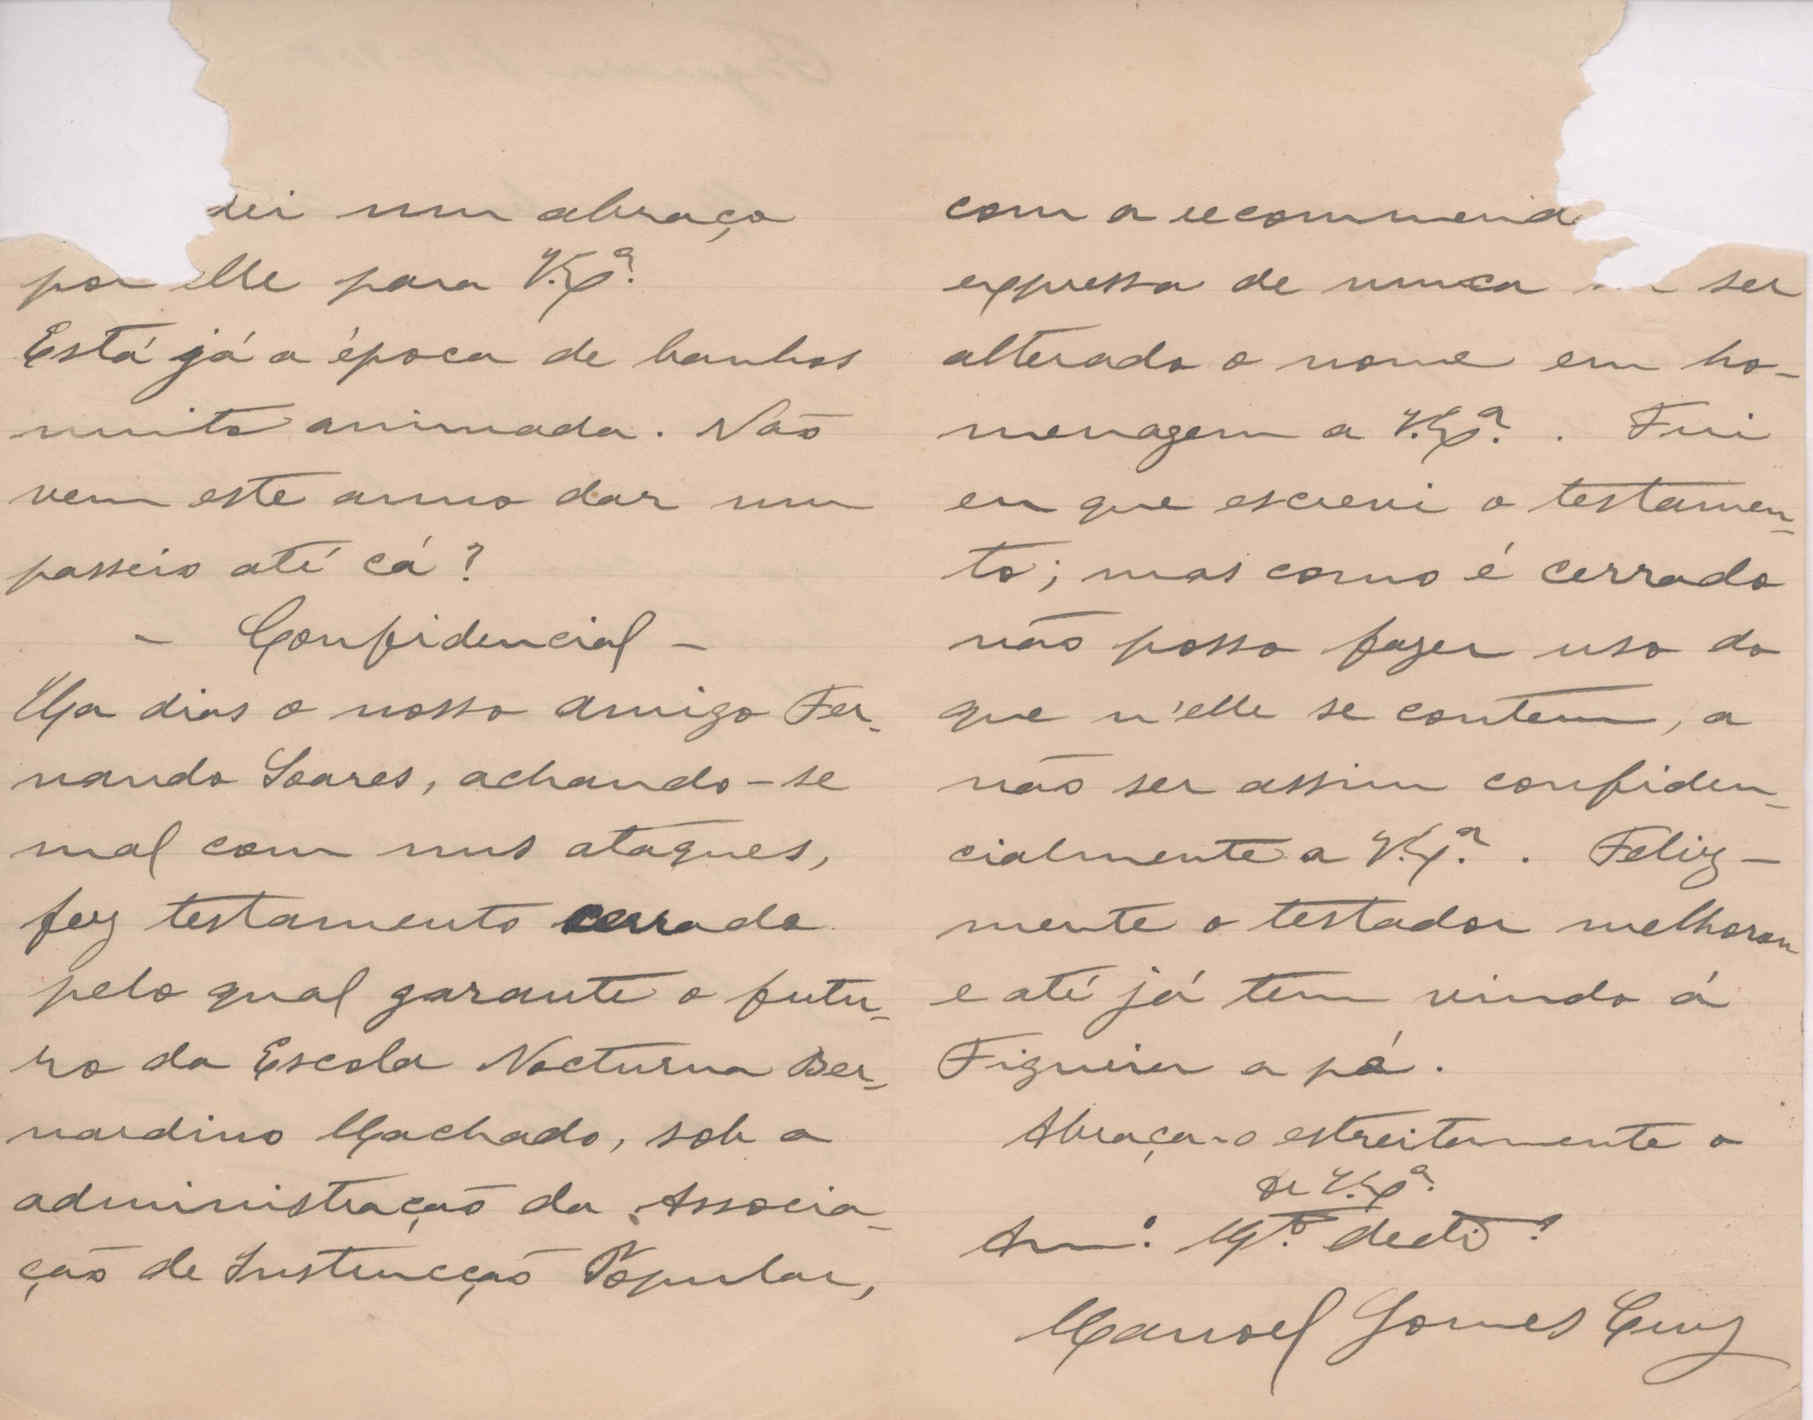 um abraço
por elle para V. Ex.ª
Está já a época de banhos
muito animada. Não
vem este anno dar um
passeio até cá?
- Confidencial -
Ha dias o nosso amigo Fer-
nando Soares, achando-se
mal com uns ataques,
fez testamento cerrado
pelo qual garante o futu-
ro da Escola Nocturna Ber-
nardino Machado, sob a
administração da Associa-
ção de Instrucção Popular,
com a recommend
expressa de nunca ser
alterado o nome em ho-
menagem a V. Ex.ª. Fui
eu que escrevi o testamen-
to; mas como é cerrado
não posso fazer uso do
que n'elle se contem, a
não ser assim confiden-
cialmente a V. Ex.ª. Feliz-
mente o testador melhorou
e até já tem vindo á
Figueira a pé.
Abraça-o estreitamente o
de V. Ex.ª
Am.º M.to dedic.º
Manoel Gomes Cruz